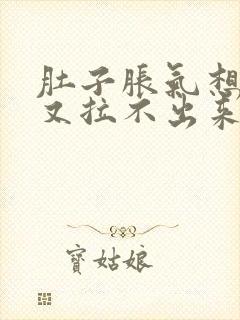 肚子胀氣想
又拉不出来
寶姑娘